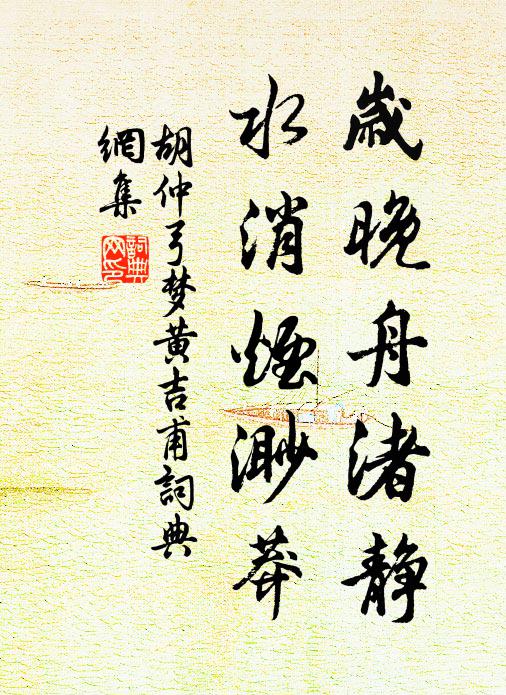 歲晚舟渚靜
水消煙渺莽
胡仲弓梦黄吉甫詞典
網集
詞典网印